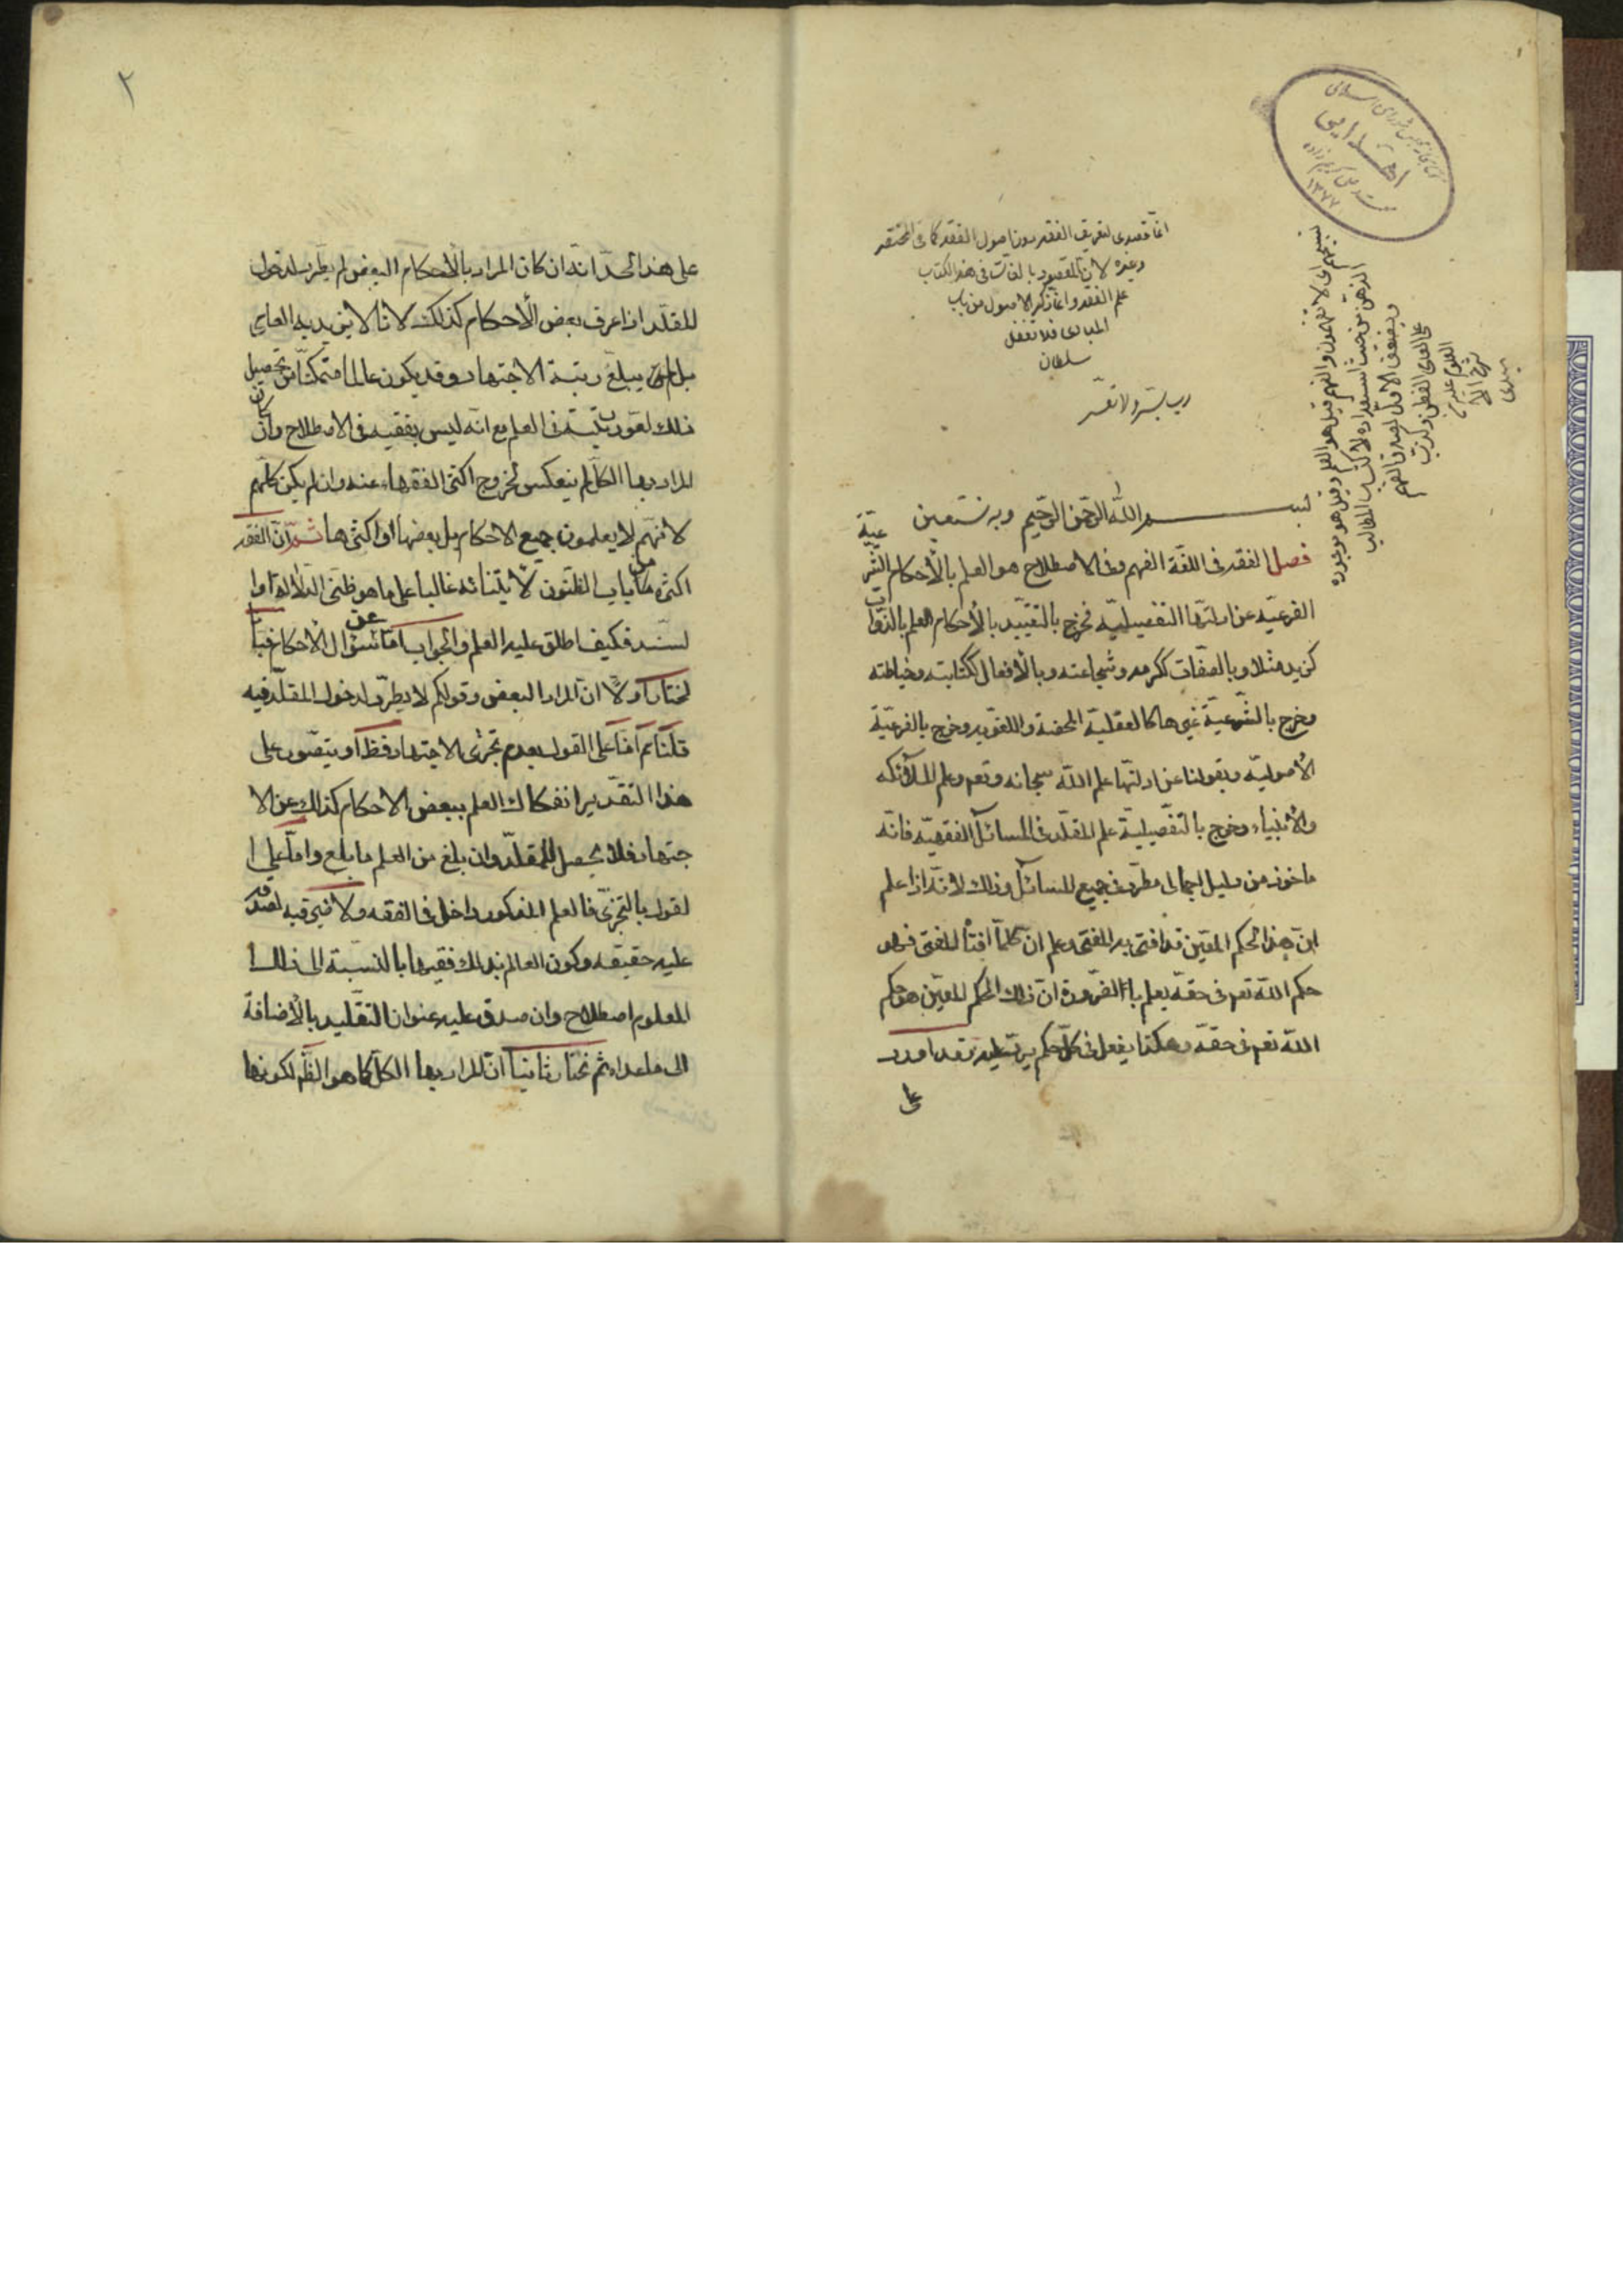 انما قصدى لتعريف الفقه دون اصول الفقه كما فى المختصر
وغيره لان المقصود بالذات فى هذا الكتاب
علم الفقه وانما ذكر الاصول من باب
المبادى فلا تغفل
سلطان
رب يسر ولا تعسر
تسبيحهم اى لا تفهمون والفهم قيل هو العلم وقيل هو جودة
الذهن من حيث استعداده لاكتساب المطالب
بسم الله الرحمن الرحيم وبه نستعين
فصل الفقه فى اللغة الفهم وفى الاصطلاح هو العلم بالأحكام الشرعيّة
الفرعيّة عن ادلتها التفصيليّة فخرج بالتقييد بالأحكام العلم بالذوات
كزيد مثلا وبالصفات ككرمه وشجاعته وبالأفعال ككتابته وخياطته
وخرج بالشرعيّة غيرها كالعقليّة المحضة واللغويه وخرج بالفرعيّة
الأصوليّه وبقولنا عن ادلتها علم الله سبحانه وتعم وعلم الملائكه
والأنبياء وخرج بالتفصيلية علم المقلّد فى المسائل الفقهيّه فانّه
ماخوذ من دليل اجمالى مطّرد فى جميع المسائل وذلك لانّه اذا علم
انّ هذا الحكم المعيّن قد افتى به المفتى وعلم ان كلما افتى به المفتى فهو
حكم الله تعم فى حقه يعلم بالضرورة انّ ذلك الحكم المعيّن هو حكم
الله تعم فى حقه وهكذا يفعل فى كلّ حكم يرد عليه وقد اورد
على
٢
على هذا الحدّ انّه ان كان المراد بالأحكام البعض لم يطّرد لدخول
المقلّد اذا عرف بعض الأحكام كذلك لانا لا نريد به العامى
بل من لم يبلغ رتبة الاجتهاد وقد يكون عالما متمكّنا من تحصيل
ذلك لعلو رتبته فى العلم مع انّه ليس بفقيه فى الاصطلاح وان كان
المراد بها الكلّ لم ينعكس لخروج اكثر الفقهاء عنه وان لم يكن كلّهم
لانّهم لا يعلمون جميع الاحكام بل بعضها او اكثرها ثمّ انّ الفقه
اكثره من باب الظنّون لابتنائه غالبا على ما هو ظنّى الدّلالة او ا
لسّند فكيف اطلق عليه العلم والجواب امّا عن سؤال الأحكام فبانا
نختار اولا انّ المراد البعض وقولكم لا يطّرد لدخول المقلّد فيه
قلنا ممّ امّا على القول بعدم تجزّى الاجتهاد فظ اذ لا يتصّور على
هذا التقدير انفكاك العلم ببعض الاحكام كذلك عن الا
جتهاد فلا يحصل للمقلّد وان بلغ من العلم ما بلغ وامّا على ا
لقول بالتجزّى فالعلم المذكور داخل فى الفقه ولا ضير فيه لصدقه
عليه حقيقه وكون العالم بذلك فقيها بالنّسبة الى ذلك ا
لمعلوم اصطلاح وان صدق عليه عنوان التقليد بالأضافة
الى ما عداه ثم نختار ثانيا انّ المراد بها الكلّ كما هو الظّم لكونها